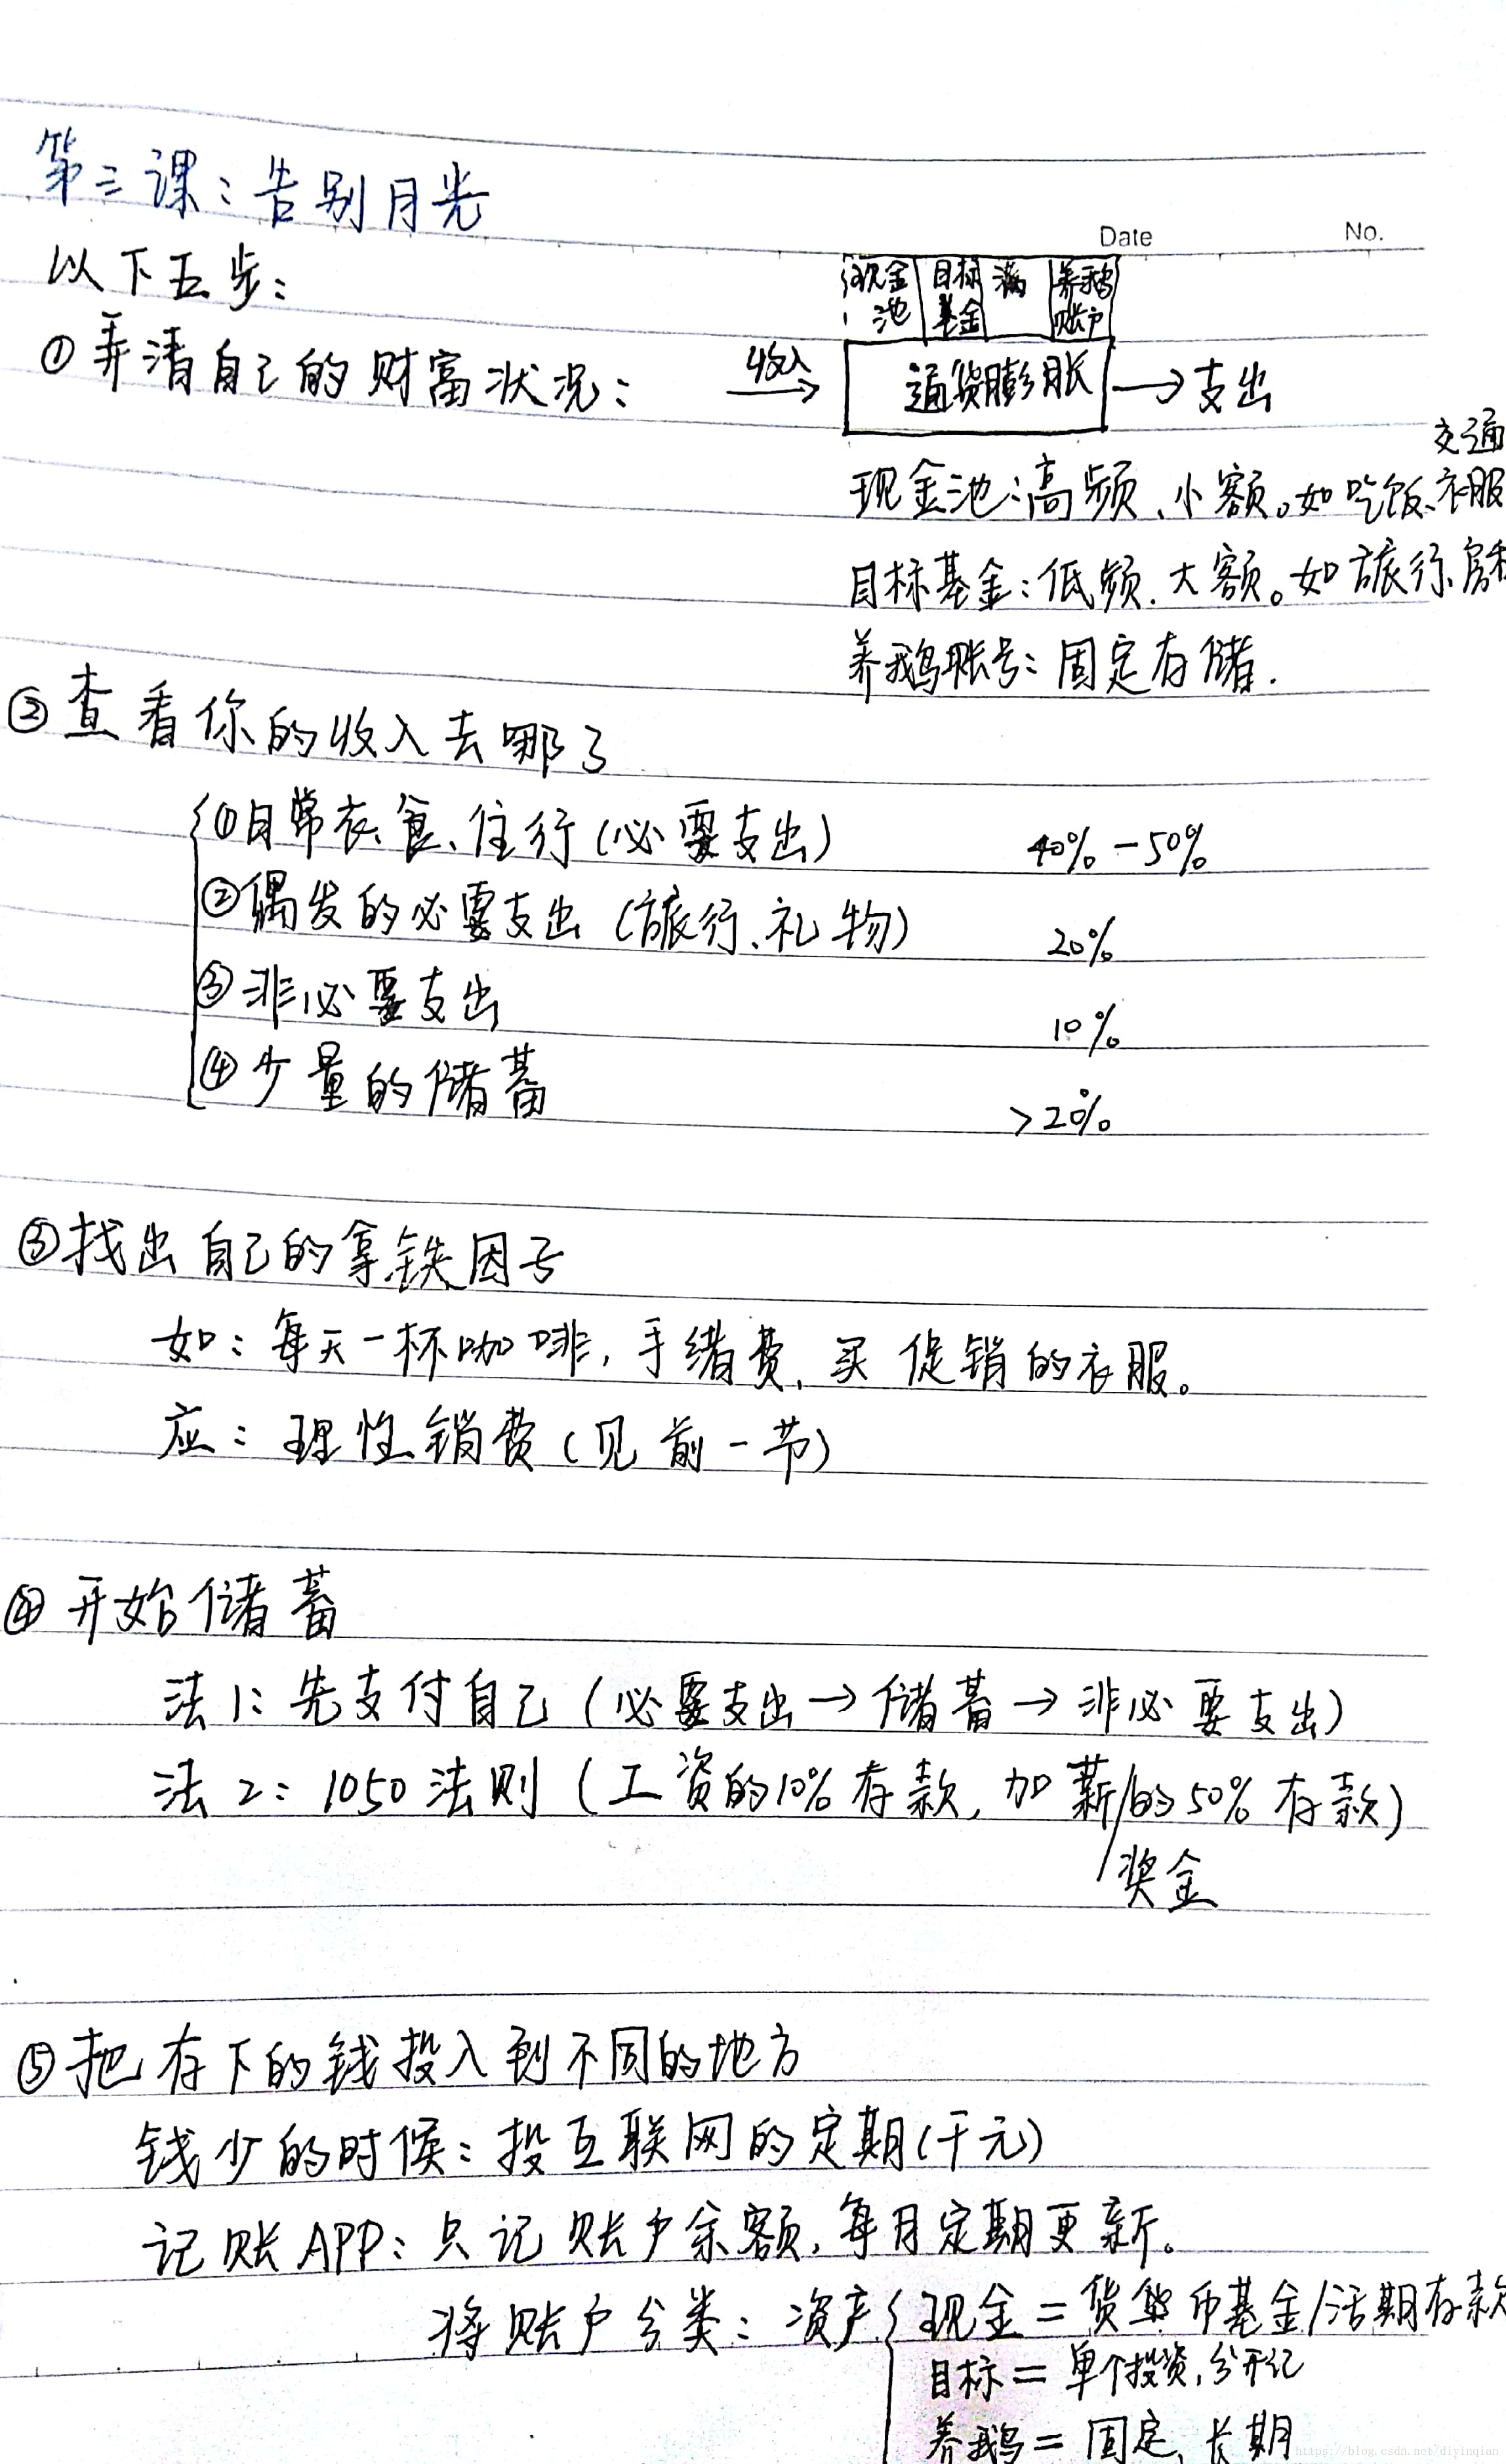 第三课：告别月光
Date No.
以下五步：
现金池 目标基金 满 养鹅账户
①弄清自己的财富状况： 收入 → 通货膨胀 → 支出
交通
现金池：高频、小额。如吃饭、衣服
目标基金：低频.大额。如旅行、房租
养鹅账号：固定存储.
②查看你的收入去哪了
①日常衣、食、住行（必要支出） 40%－50%
②偶发的必要支出（旅行、礼物） 20%
③非必要支出 10%
④少量的储蓄 >20%
③找出自己的拿铁因子
如：每天一杯咖啡，手续费，买促销的衣服。
应：理性销费（见前一节）
④开始储蓄
法1：先支付自己（必要支出→储蓄→非必要支出）
法2：1050法则（工资的10%存款，加薪/的50%存款）
/奖金
⑤把存下的钱投入到不同的地方
钱少的时候：投互联网的定期（千元）
记账APP：只记账户余额，每月定期更新。
将账户分类：资产{现金＝货币基金/活期存款
目标＝单个投资，分开记
养鹅＝固定、长期
https://blog.csdn.net/diyinqian